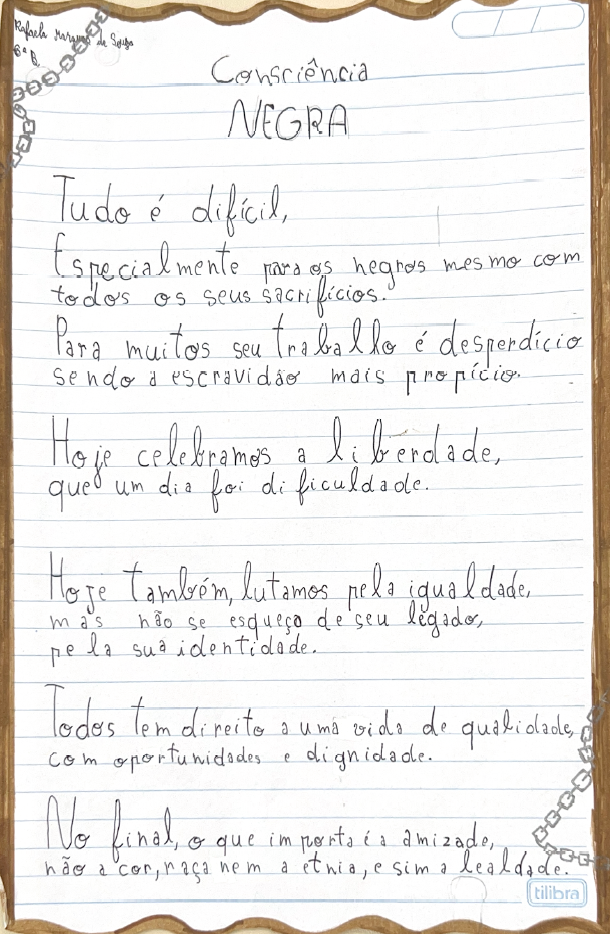 Rafaela Marques de Souza
6º B
Consciência
NEGRA
Tudo é difícil,
Especialmente para os negros mesmo com
todos os seus sacrifícios.
Para muitos seu trabalho é desperdício
sendo a escravidão mais propício.
Hoje celebramos a liberdade,
que um dia foi dificuldade.
Hoje também, lutamos pela igualdade,
mas não se esqueça de seu legado,
pela sua identidade.
Todos tem direito a uma vida de qualidade,
com oportunidades e dignidade.
No final, o que importa é a amizade,
não a cor, raça nem a etnia, e sim a lealdade.
tilibra